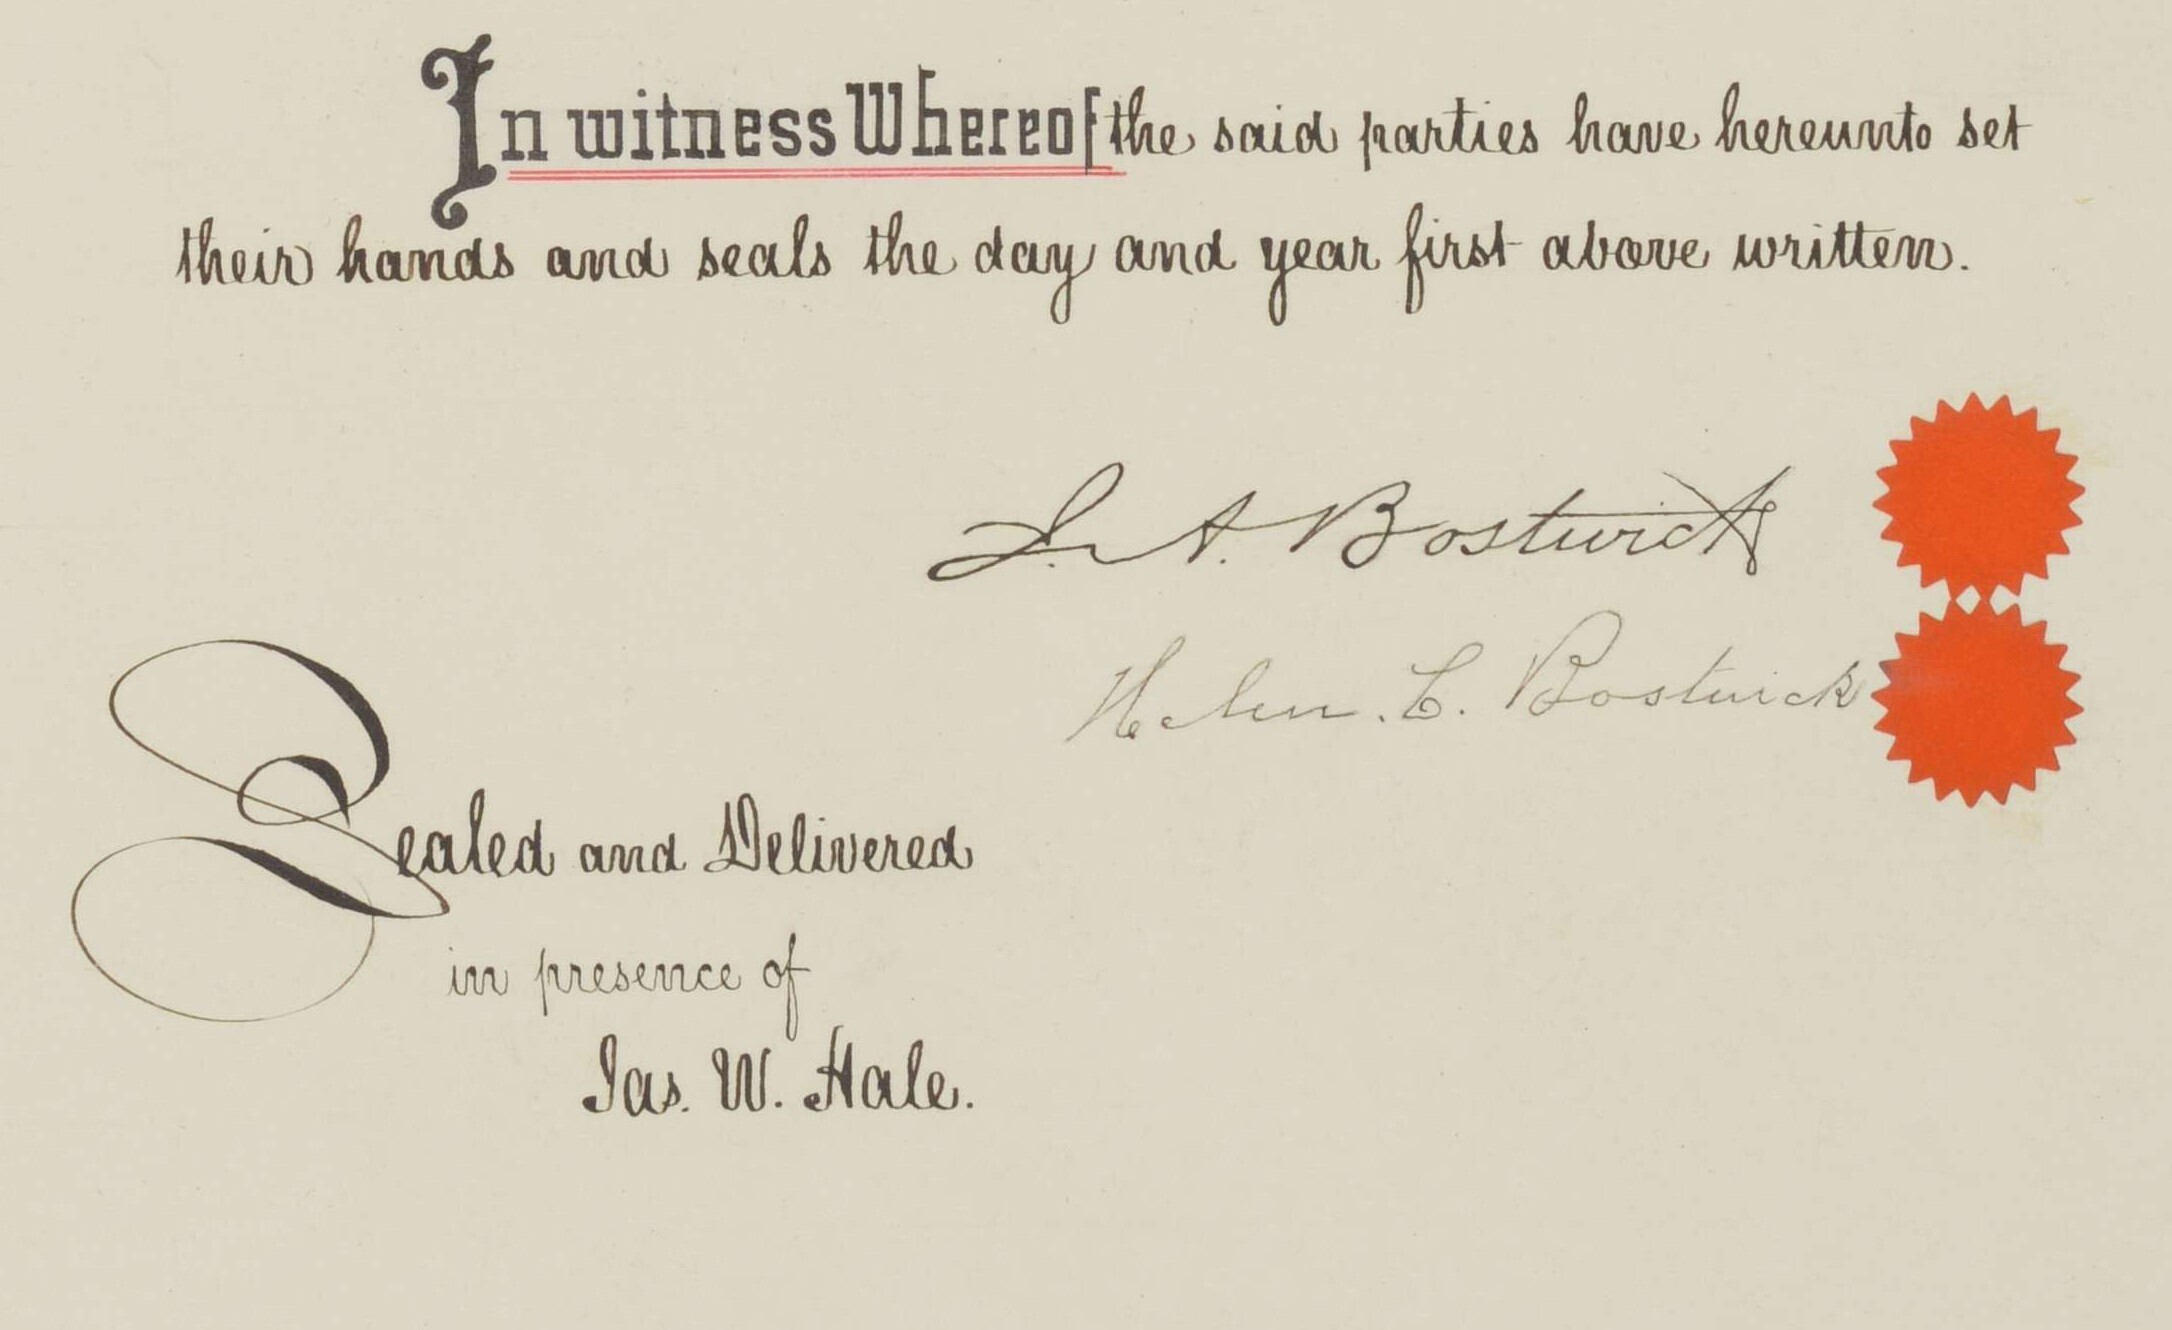 In witness Whereof the said parties have hereunto set
their hands and seals the day and year first above written.
J. A. Bostwick
Helen. C. Bostwick
Sealed and Delivered
in presence of
Jas. W. Hale.